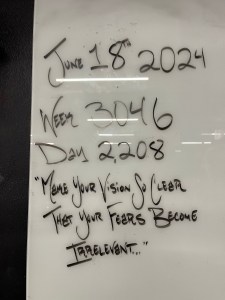 June 18th 2024
Week 3046
Day 2,208
"Make Your Vision So Clear
That Your Fears Become
Irrelevant..."